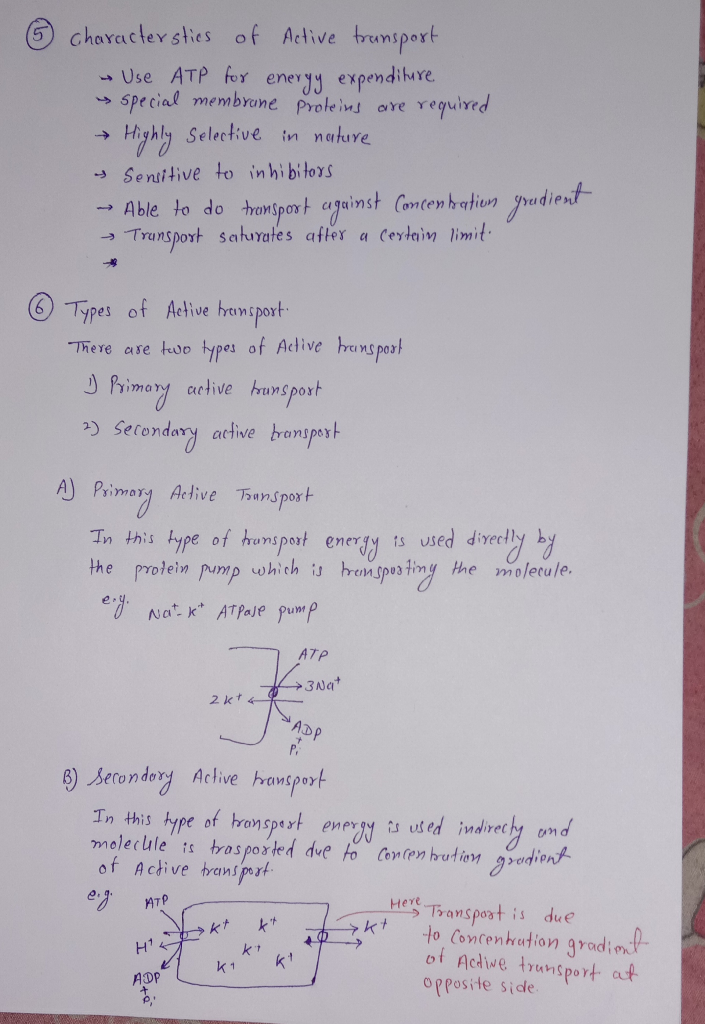 ⑤ characterstics of Active transport
→ Use ATP for energy expenditure
→ special membrane proteins are required
→ Highly Selective in nature
→ Sensitive to inhibitors
→ Able to do transport against Concentration gradient
→ Transport saturates after a certain limit.
→
⑥ Types of Active transport.
There are two types of Active transport
1) Primary active transport
2) Secondary active transport
A) Primary Active Transport
In this type of transport energy is used directly by
the protein pump which is transposting the molecule.
e.g. Na+-K+ ATPase pump
ATP
3Na+
2K+
ADP
+
Pi
B) Secondary Active transport
In this type of transport energy is used indirecty and
moleclule is trasported due to concentration gradient
of Active transport.
e.g. ATP
H+ K+ K+ K+ K+ K+ K+
ADP
+
Pi
Here Transport is due
to Concentration gradient
of Active transport at
opposite side.